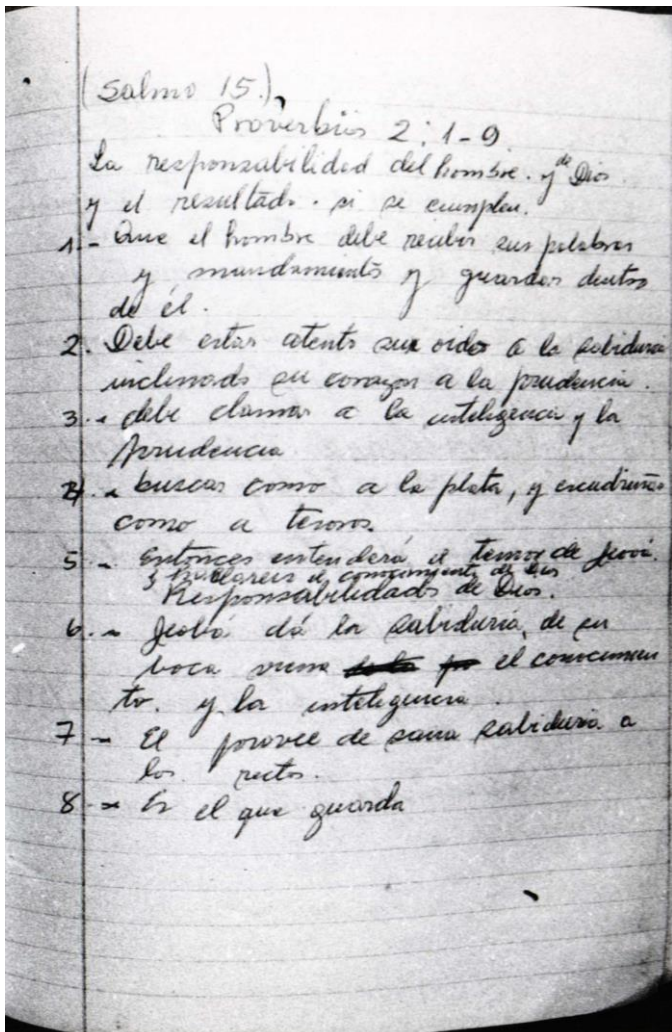 (Salmo 15.),
Proverbios 2:1-9.
La responsabilidad del hombre. y de Dios
y el resultado. si se cumplen.
1- Que el hombre debe recibir sus palabras
y mandamientos y guardar dentro
de él.
2. Debe estar atento su oido a la sabiduria
inclinado su corazon a la prudencia.
3.- debe clamar a la inteligencia y la
prudencia
4.- buscar como a la plata, y escudriñar
como a tesoros.
5- Entonces entenderá el temor de Jeová.
y hallareis el conocimiento de Dios
Responsabilidades de Dios.
6.- Jeobá dá la sabiduría, de su
boca viene el conocimien
to. y la inteligencia.
7- El provee de sana sabiduria a
los rectos.
8- Es el que guarda